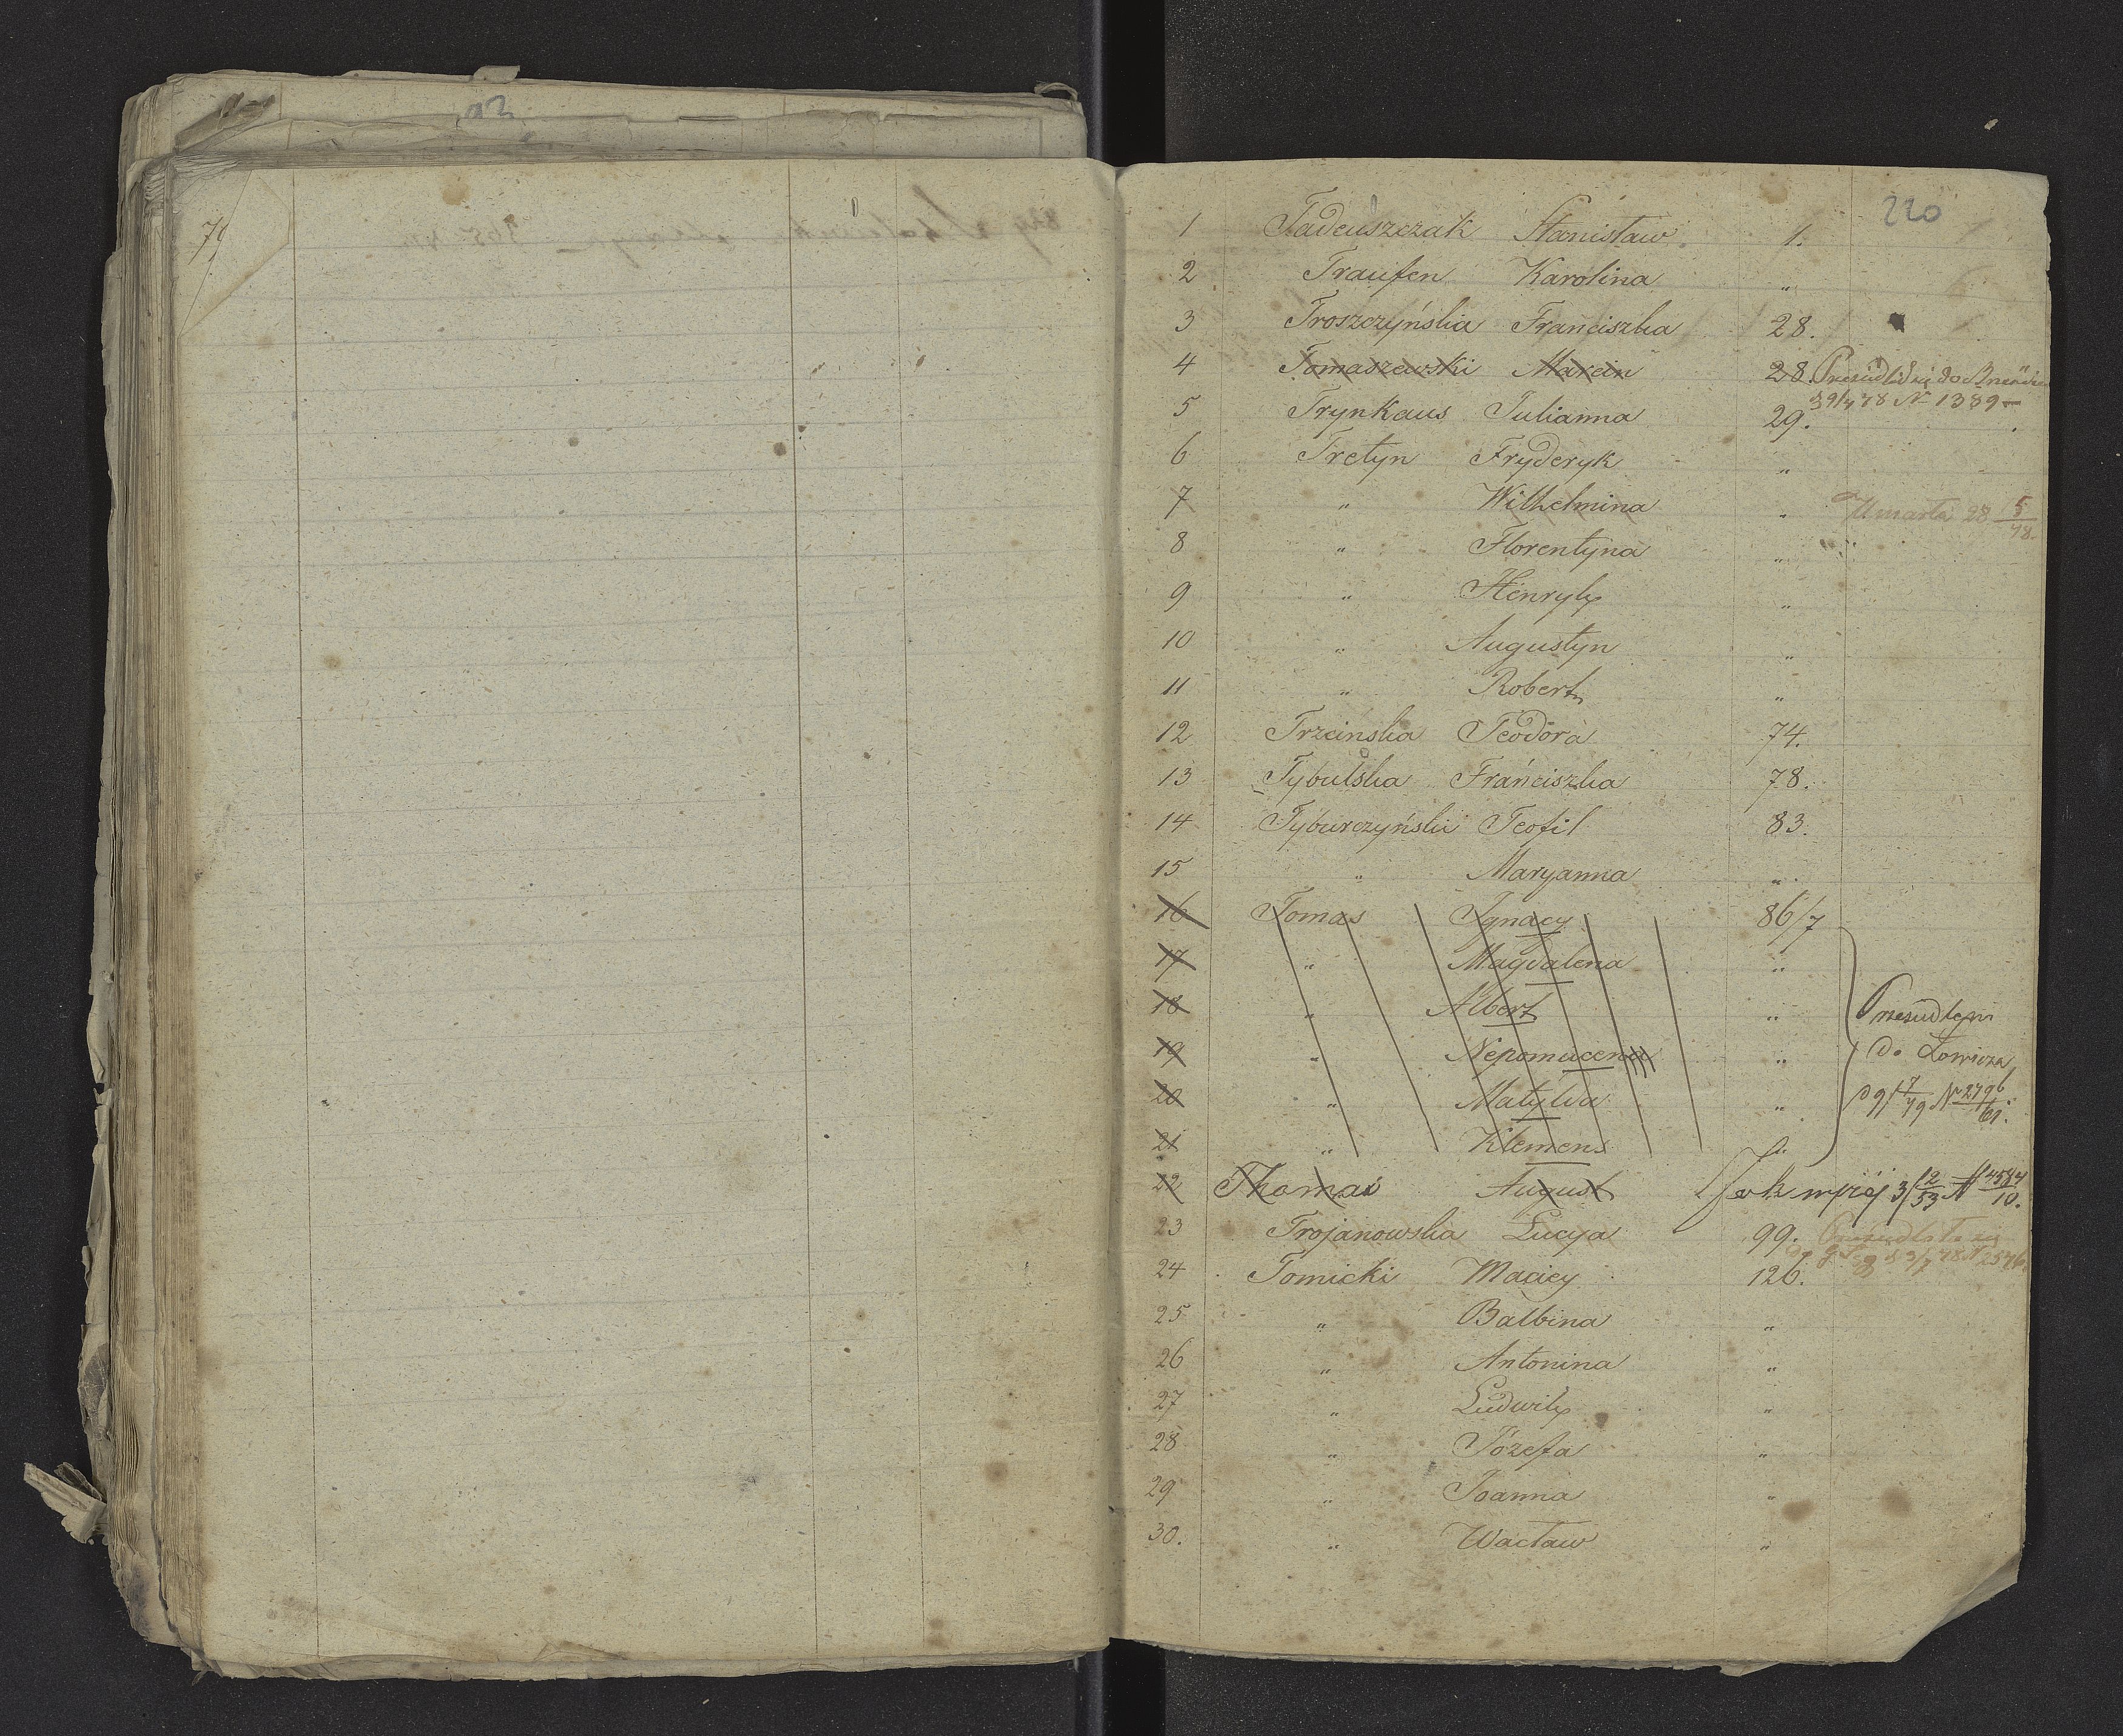 93
79
220
1 Tadeuszczak Stanisław 1.
2 Traufen Karolina „
3 Troszczyńska Franciszka 28.
4 Tomaszewski Marcin 28.
№ 1389
5 Trynkaus Julianna 29.
6 Tretyn Fryderyk „
7 „ Wilhelmina „ Umarła 28 5/78.
8 „ Florentyna „
9 „ Henryk „
10 „ Augustyn „
11 „ Robert „
12 Trzcinska Teodora 74.
13 Tybulska Franciszka 78.
14 Tyburczyński Teofil 83.
15 „ Maryanna „
16 Tomas Ignacy 86/7
17 „ Magdalena „
18 „ Albert „ Przesiedleni
19 „ Nepomucena „ do Łowicza
20 „ Matylda „ № 2796/61.
21 „ Klemens „
22 Thomas August 3/12/53 № 4584/10.
23 Trojanowska Lucya 99.
24 Tomicki Maciey 126.
25 „ Balbina „
26 „ Antonina „
27 „ Ludwik „
28 „ Józefa „
29 „ Joanna „
30. „ Wacław „